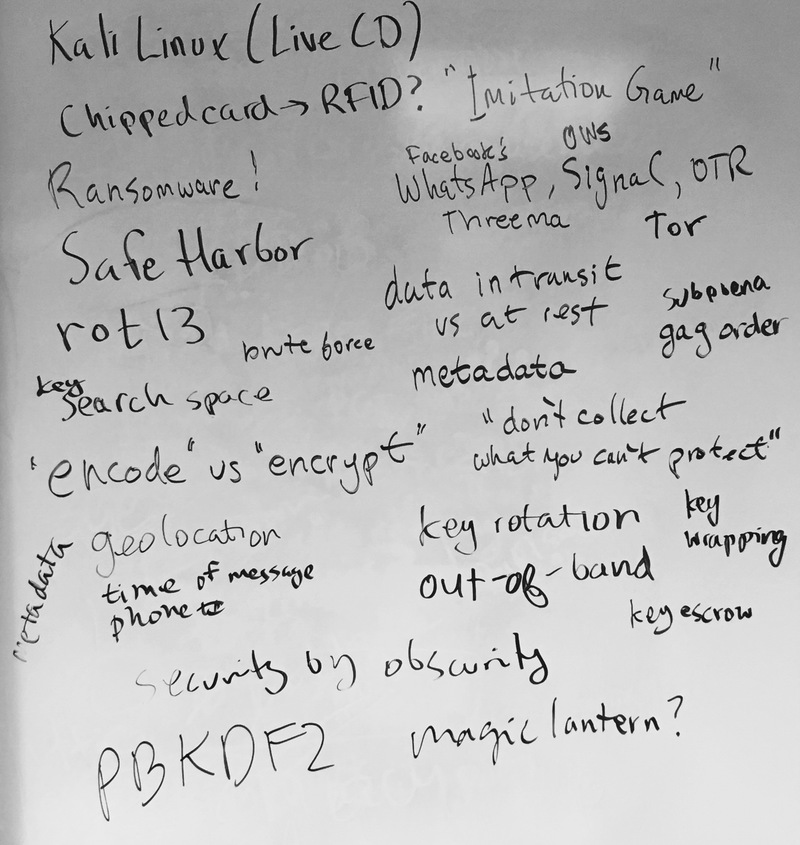 Kali Linux (Live CD)
Chipped card → RFID? "Imitation Game"
Ransomware!
Facebook's OWS
WhatsApp, Signal, OTR
Threema Tor
Safe Harbor
data in transit
vs at rest
subpoena
gag order
rot13
brute force
metadata
key
search space
"don't collect
what you can't protect"
"encode" vs "encrypt"
metadata
geolocation
time of message
phone
key rotation
key
wrapping
out-of-band
key escrow
security by obscurity
PBKDF2
magic lantern?